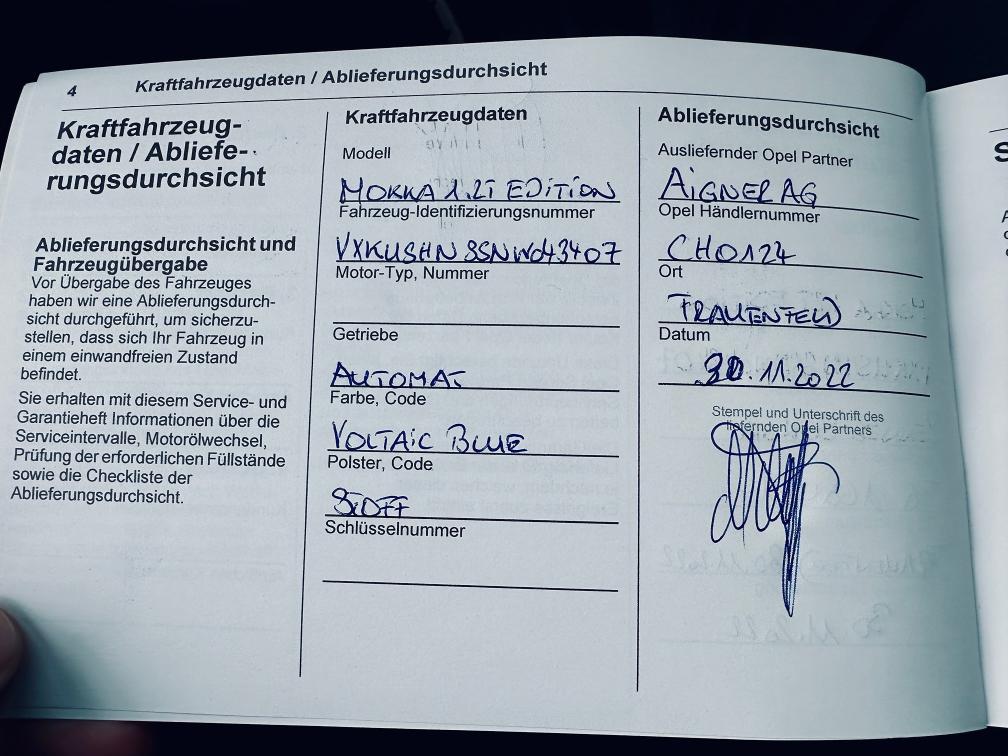 4
Kraftfahrzeugdaten / Ablieferungsdurchsicht
Kraftfahrzeug-
daten / Abliefe-
rungsdurchsicht
Ablieferungsdurchsicht und
Fahrzeugübergabe
Vor Übergabe des Fahrzeuges
haben wir eine Ablieferungsdurch-
sicht durchgeführt, um sicherzu-
stellen, dass sich Ihr Fahrzeug in
einem einwandfreien Zustand
befindet.
Sie erhalten mit diesem Service- und
Garantieheft Informationen über die
Serviceintervalle, Motorölwechsel,
Prüfung der erforderlichen Füllstände
sowie die Checkliste der
Ablieferungsdurchsicht.
Kraftfahrzeugdaten
Modell
MOKKA 1.2T EDITION
Fahrzeug-Identifizierungsnummer
VXKUSHNSSNW043407
Motor-Typ, Nummer
Getriebe
AUTOMAT
Farbe, Code
VOLTAIC BLUE
Polster, Code
STOFF
Schlüsselnummer
Ablieferungsdurchsicht
Ausliefernder Opel Partner
AIGNER AG
Opel Händlernummer
CH0124
Ort
FRAUENFELD
Datum
30.11.2022
Stempel und Unterschrift des
liefernden Opel Partners